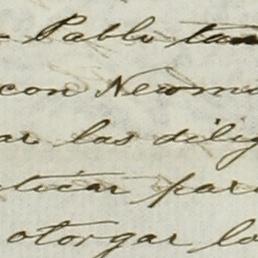 Pablo tan
con Newm
ar las dilig
ticar par
otorgar lo